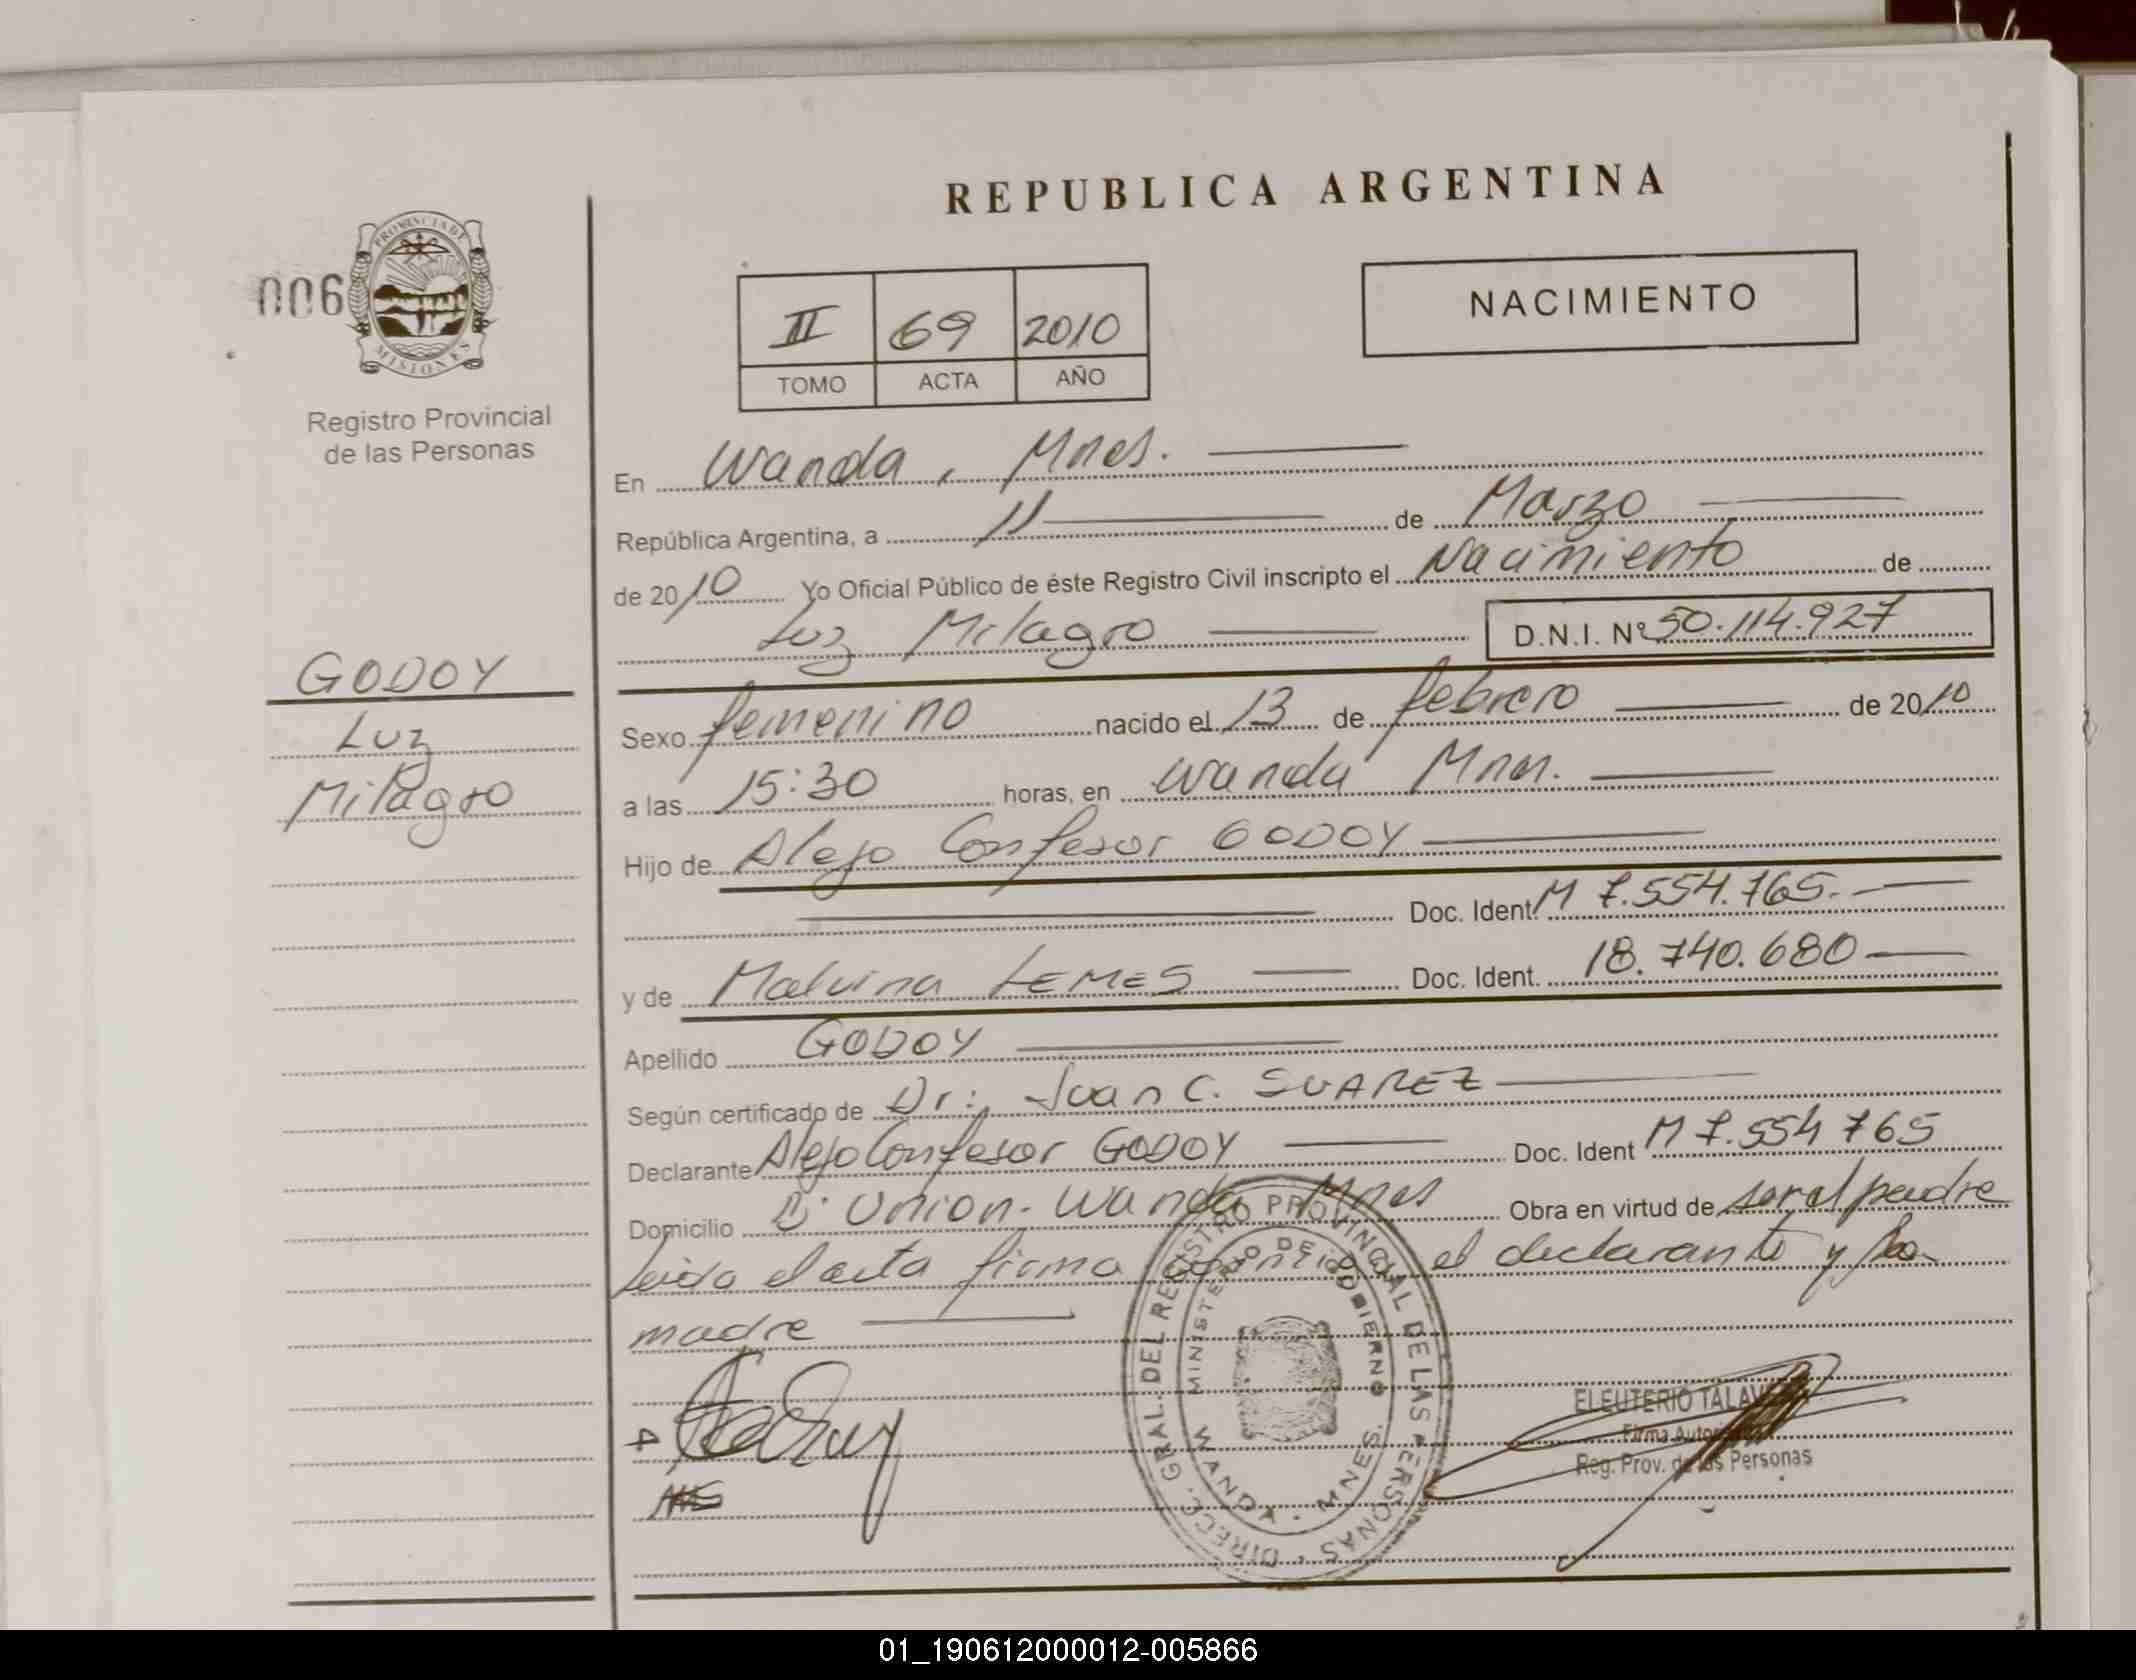 REPUBLICA ARGENTINA
006
PROVINCIA DE
MISIONES
Registro Provincial
de las Personas
II 69 2010
TOMO ACTA AÑO
NACIMIENTO
GODOY
Luz
Milagro
En Wanda, Mnes.
República Argentina, a 11 de Marzo
de 2010 Yo Oficial Público de éste Registro Civil inscripto el Nacimiento de
Luz Milagro D.N.I. Nº 50.114.927
Sexo femenino nacido el 13 de febrero de 2010
a las 15:30 horas, en Wanda Mnes.
Hijo de Alejo Confesor GODOY
Doc. Ident. M 7.554.765.
y de Malvina LEMES Doc. Ident. 18.740.680
Apellido GODOY
Según certificado de Dr: Juan C. SUAREZ
Declarante Alejo Confesor GODOY Doc. Ident M 7.554 765
Domicilio Bº Union. Wanda Mnes Obra en virtud de ser el padre
leida el acta firma el declarante y la
madre
DIRECC. GRAL. DEL REGISTRO PROVINCIAL DE LAS PERSONAS
MINISTERIO DE GOBIERNO
WANDA. MNES.
ELEUTERIO TALAVERA
Firma
Reg. Prov. de las Personas
01_190612000012-005866